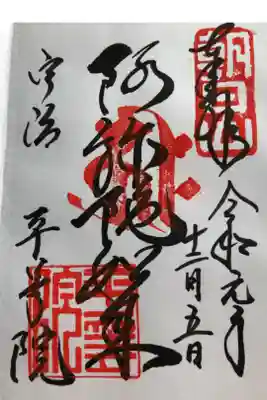 奉拝
令和元年
十二月五日
阿弥陀如来
宇治
平等院